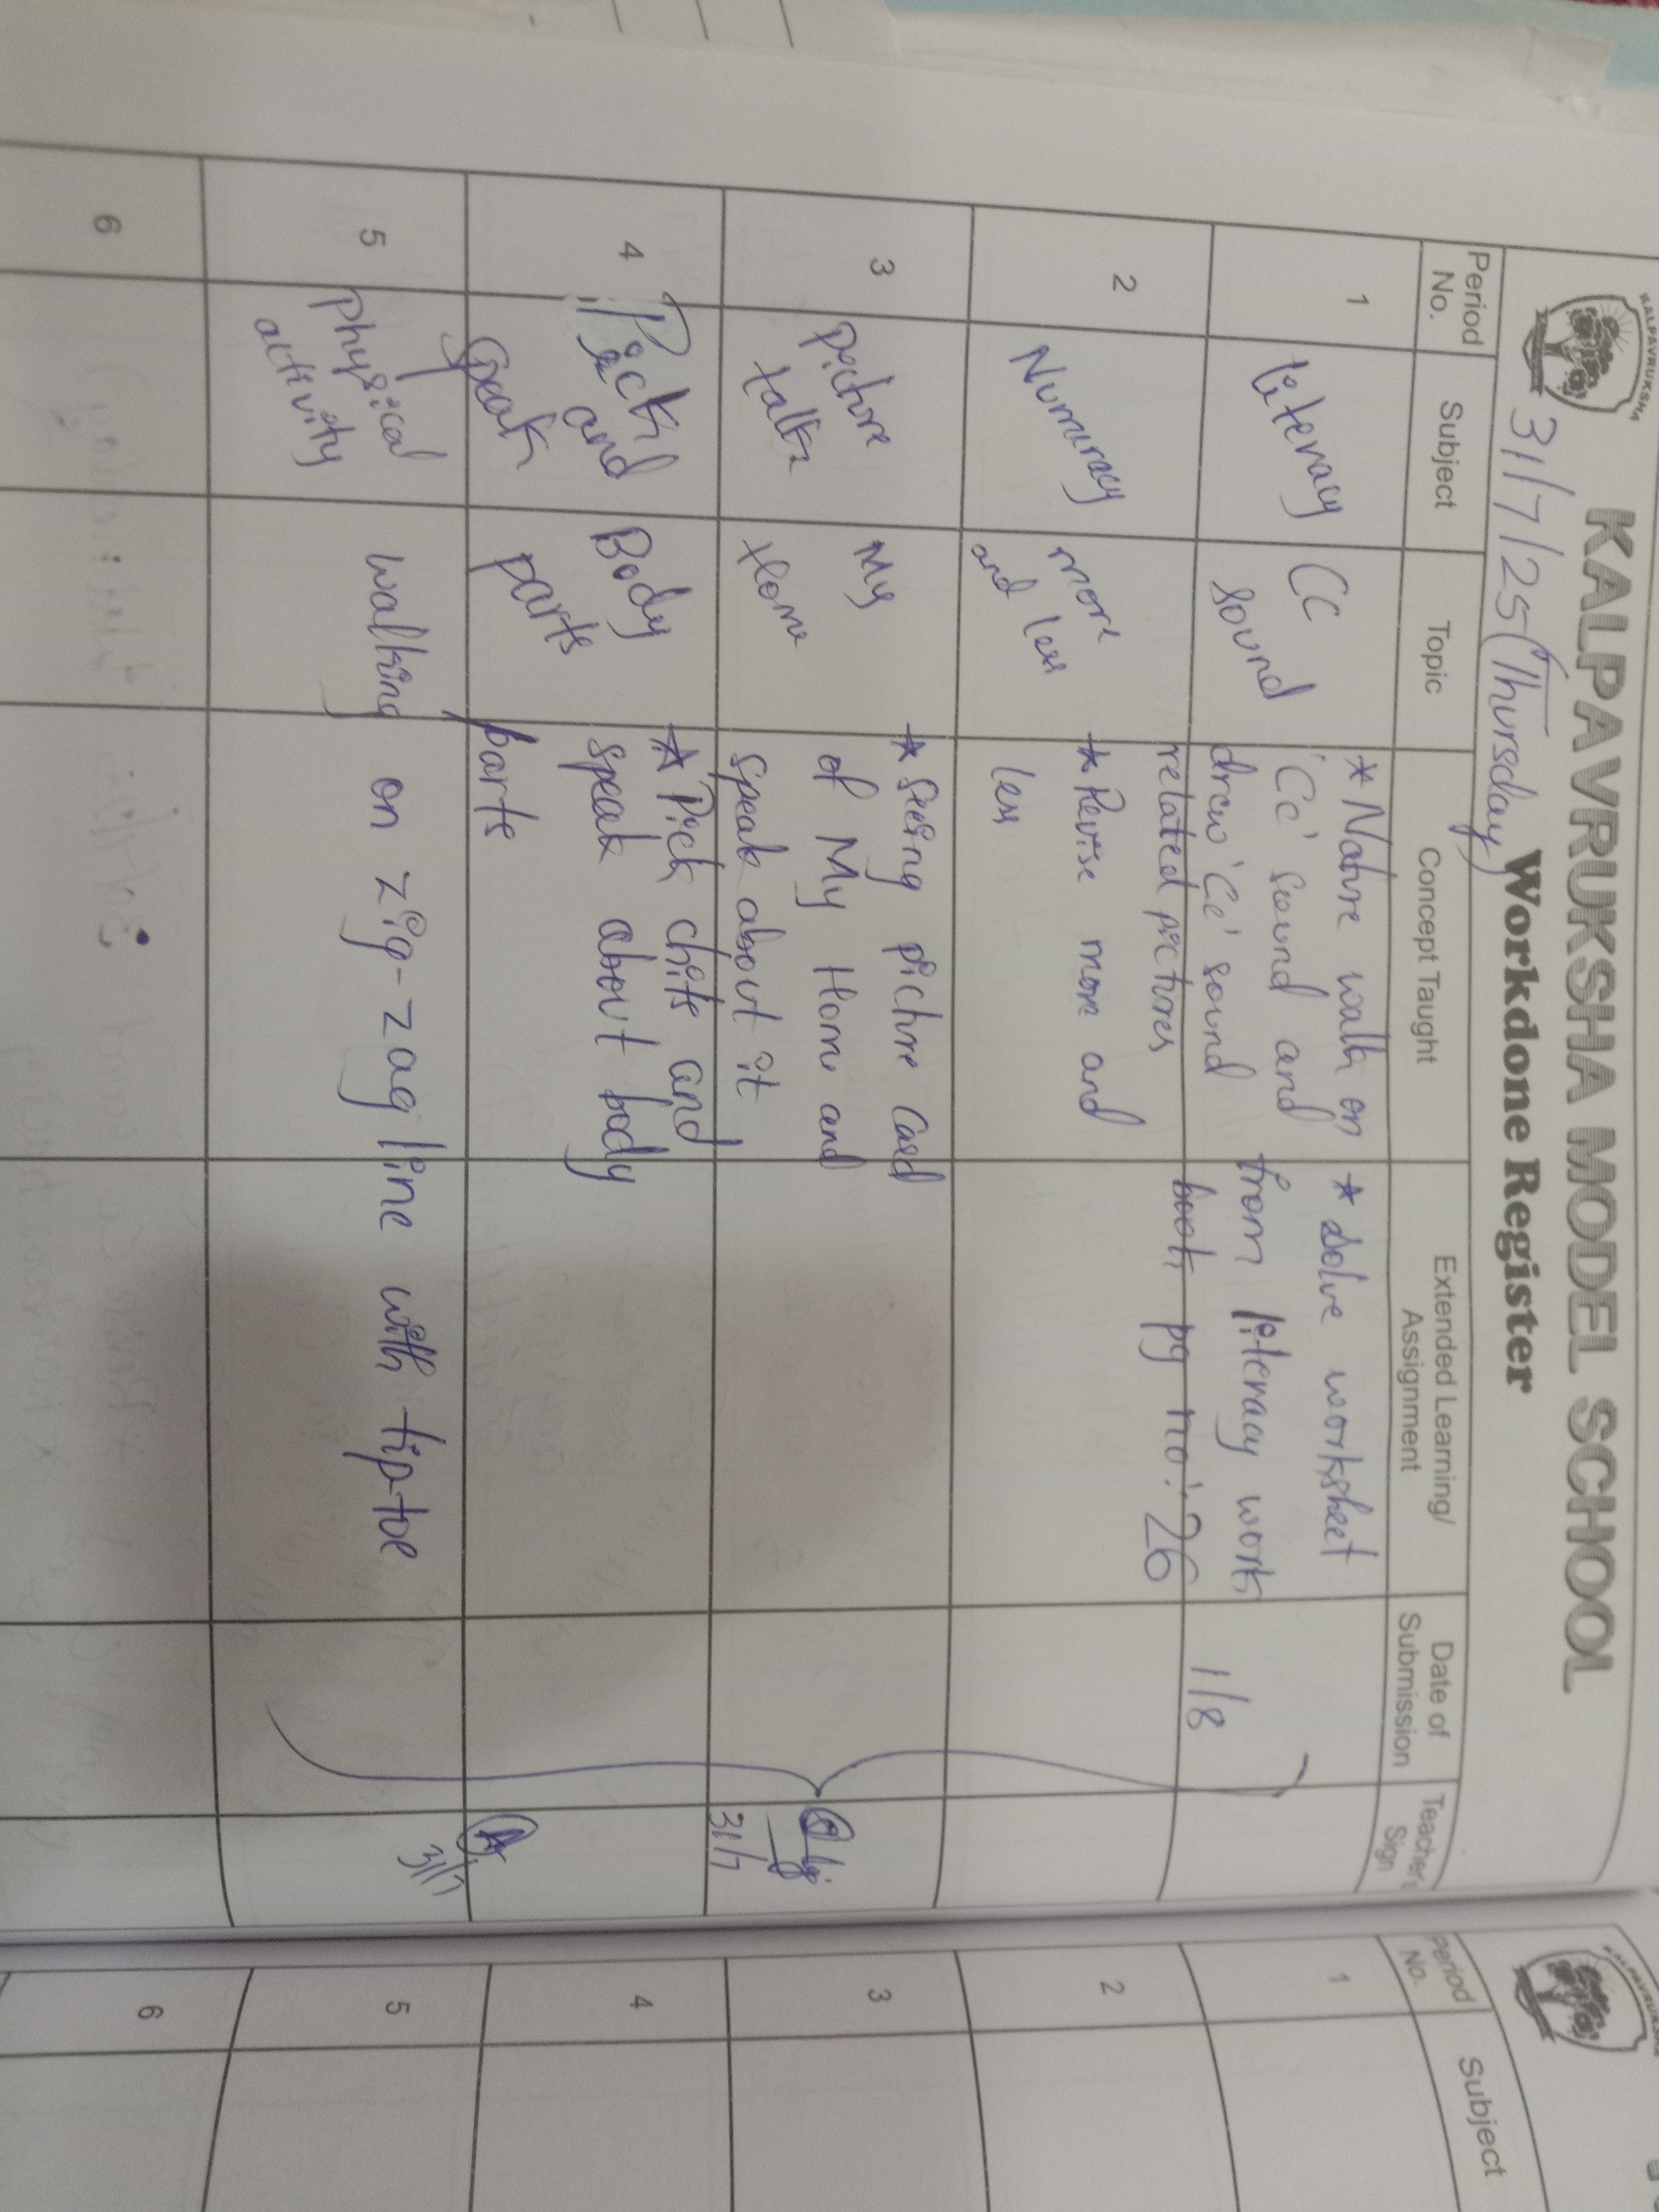 KALPAVRUKSHA
KALPAVRUKSHA MODEL SCHOOL
Workdone Register
31/7/25 (Thursday)
Period No.
Subject
Topic
Concept Taught
Extended Learning/ Assignment
Date of Submission
Teacher's Sign
1
Literacy
Cc
sound
* Nature walk on
'Cc' sound and
draw 'Cc' sound
related pictures
* Solve worksheet
from literacy work
book pg no: 26
1/8
2
Numuracy
more
and less
* Revise more and
less
3
picture
talk
My
Home
* Seeing picture card
of My Home and
speak about it
31/7
4
Pick
and
Speak
Body
parts
* Pick chits and
speak about body
parts
5
Physical
activity
walking on zig-zag line with tip-toe
31/7
6
Period No.
Subject
1
2
3
4
5
6